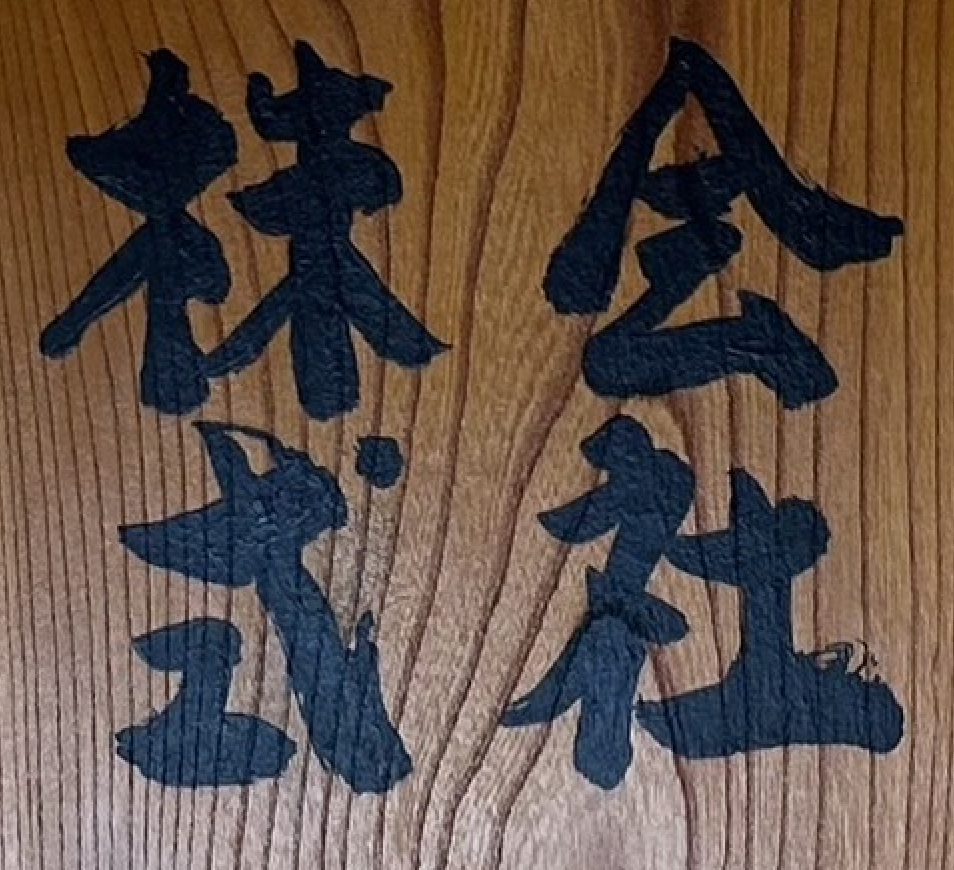 株式
会社